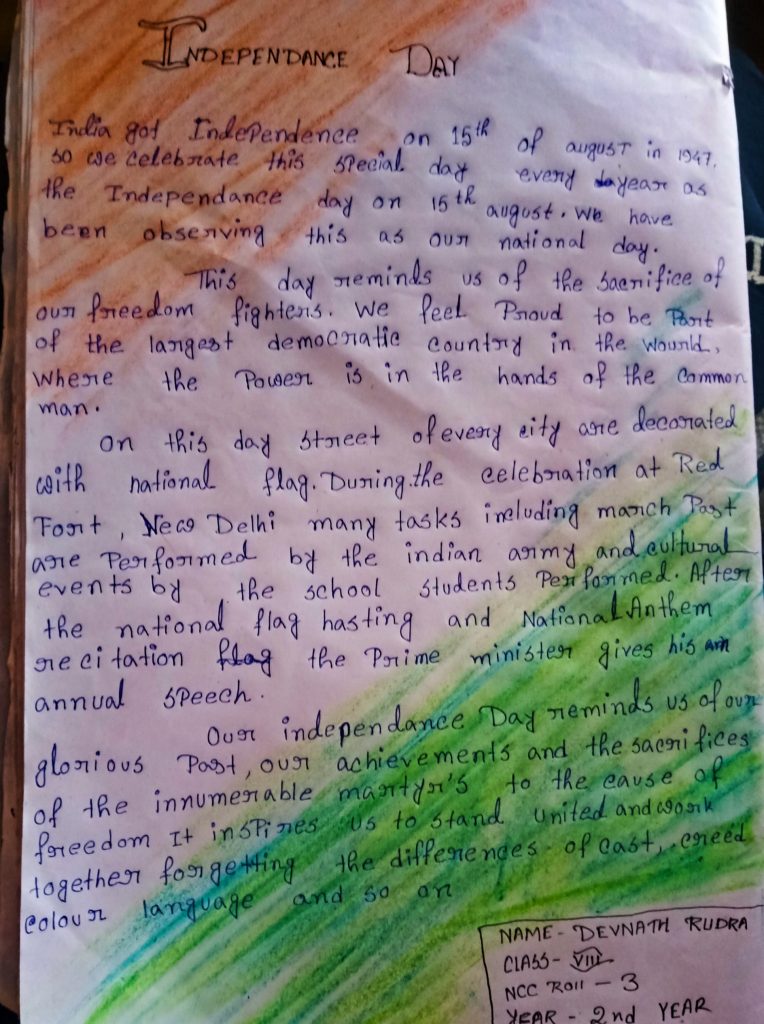 INDEPENDANCE DAY
India got Independence on 15th of august in 1947.
so we celebrate this special day every year as
the Independance day on 15th august. We have
been observing this as our national day.
This day reminds us of the sacrifice of
our freedom fighters. We feel Proud to be Part
of the largest democratic country in the wourld,
where the Power is in the hands of the common
man.
On this day street of every city are decorated
with national flag. During the celebration at Red
Fort, New Delhi many tasks including march Past
are Performed by the indian army and cultural
events by the school students Performed. After
the national flag hasting and National Anthem
recitation flag the Prime minister gives his
annual speech.
Our independance Day reminds us of our
glorious Past, our achievements and the sacrifices
of the innumerable martyr's to the cause of
freedom It inspires us to stand united and work
together forgetting the differences of cast, creed
colour language and so on
NAME - DEVNATH RUDRA
CLASS - VIII
NCC Roll - 3
YEAR - 2nd YEAR